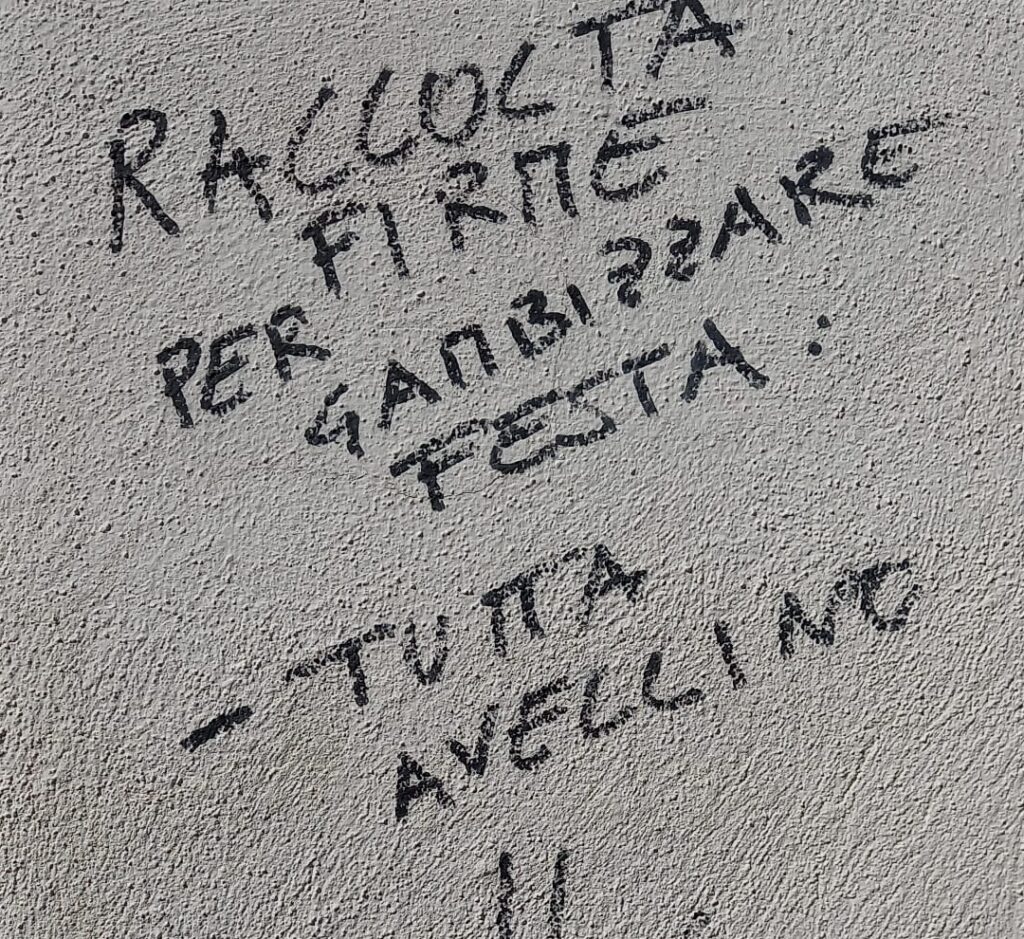 RACCOLTA
FIRME
PER
GAMBIZZARE
FESTA:
- TUTTA
AVELLINO